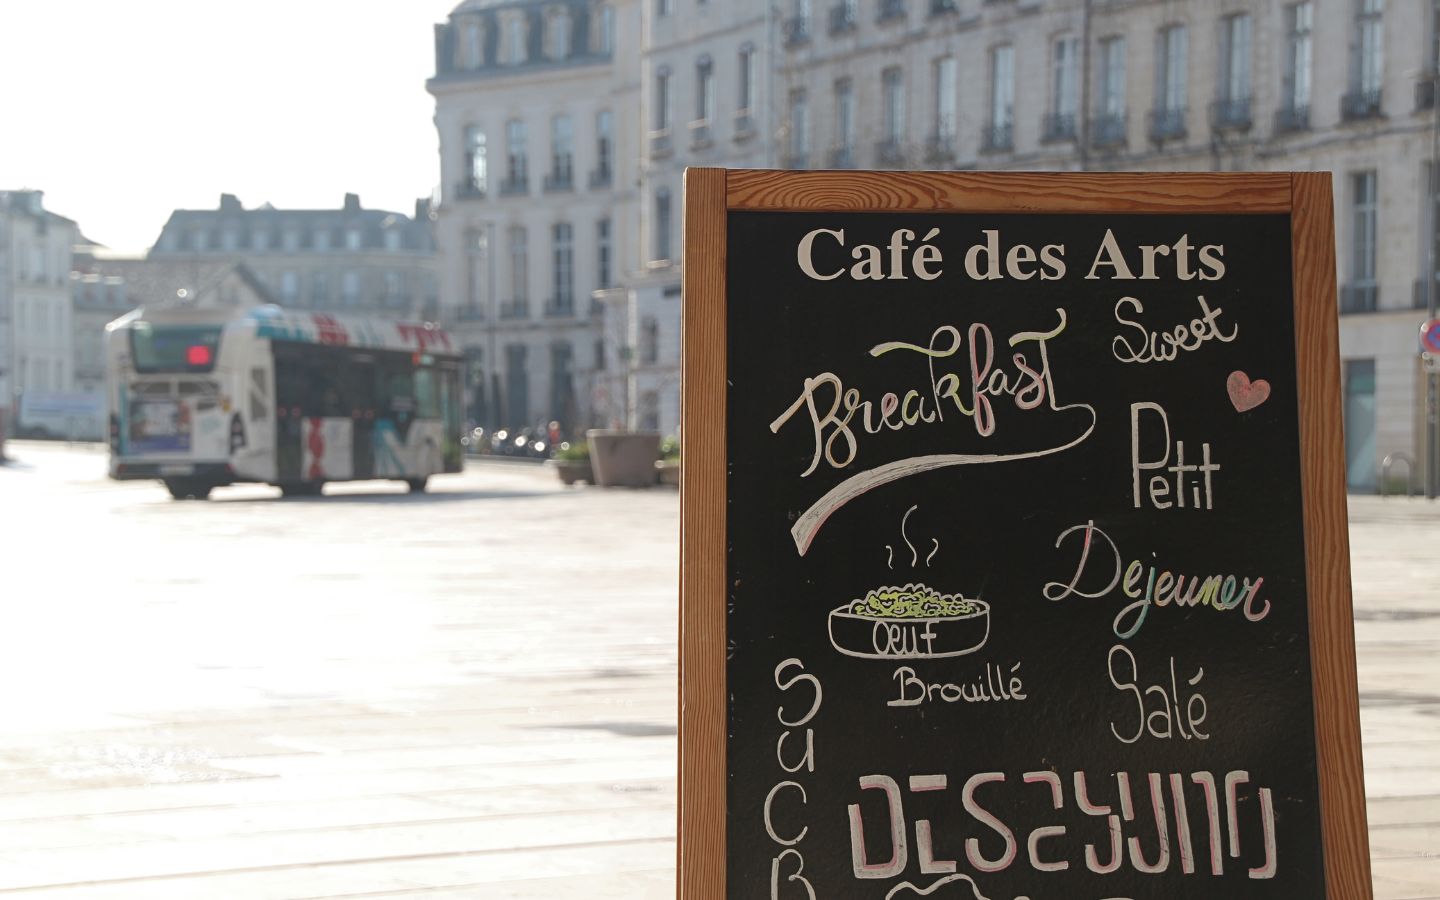 Café des Arts
Sweet
Breakfast
Petit
Dejeuner
Oeuf
Brouillé
Salé
SUCR
DESAYUNO